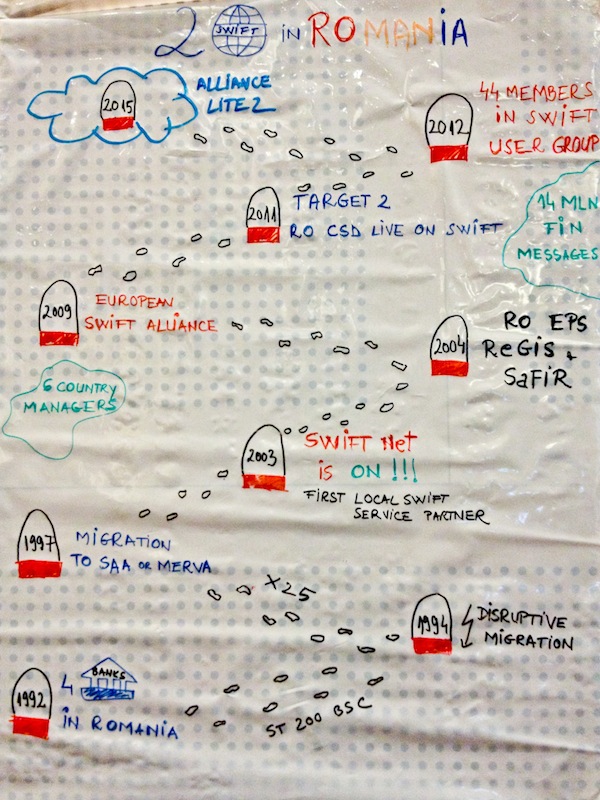 2 SWIFT in ROMANIA
2015
ALLIANCE
LITE 2
2012
44 MEMBERS
IN SWIFT
USER GROUP
2011
TARGET 2
RO CSD LIVE ON SWIFT
14 MLN
FIN
MESSAGES
2009
EUROPEAN
SWIFT ALLIANCE
2004
RO EPS
ReGIS +
SaFIR
6 COUNTRY
MANAGERS
2003
SWIFT Net
is ON !!!
FIRST LOCAL SWIFT
SERVICE PARTNER
1997
MIGRATION
TO SAA OR MERVA
X25
1994
DISRUPTIVE
MIGRATION
1992
4 BANKS
IN ROMANIA
ST 200 BSC